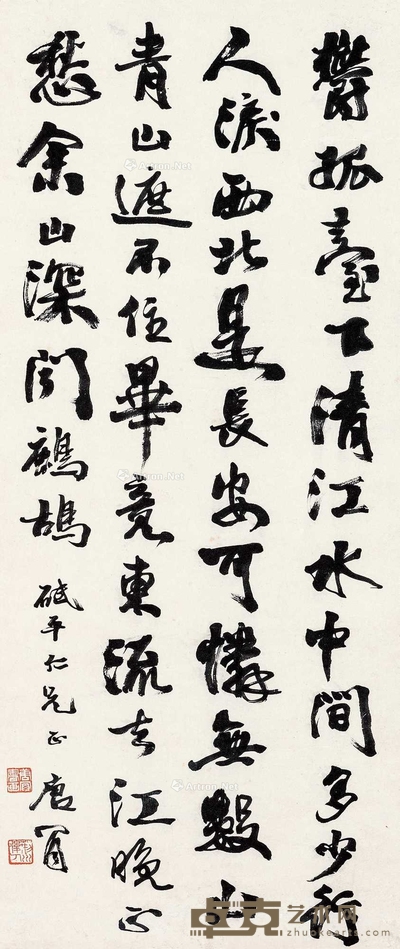 鬱孤臺下清江水中間多少行
人淚西北是長安可憐無數山
青山遮不住畢竟東流去江晚正
愁余山深聞鷓鴣
砥平仁兄正
唐肎
卓克艺术网
www.zhuokearts.com
Artron.Net